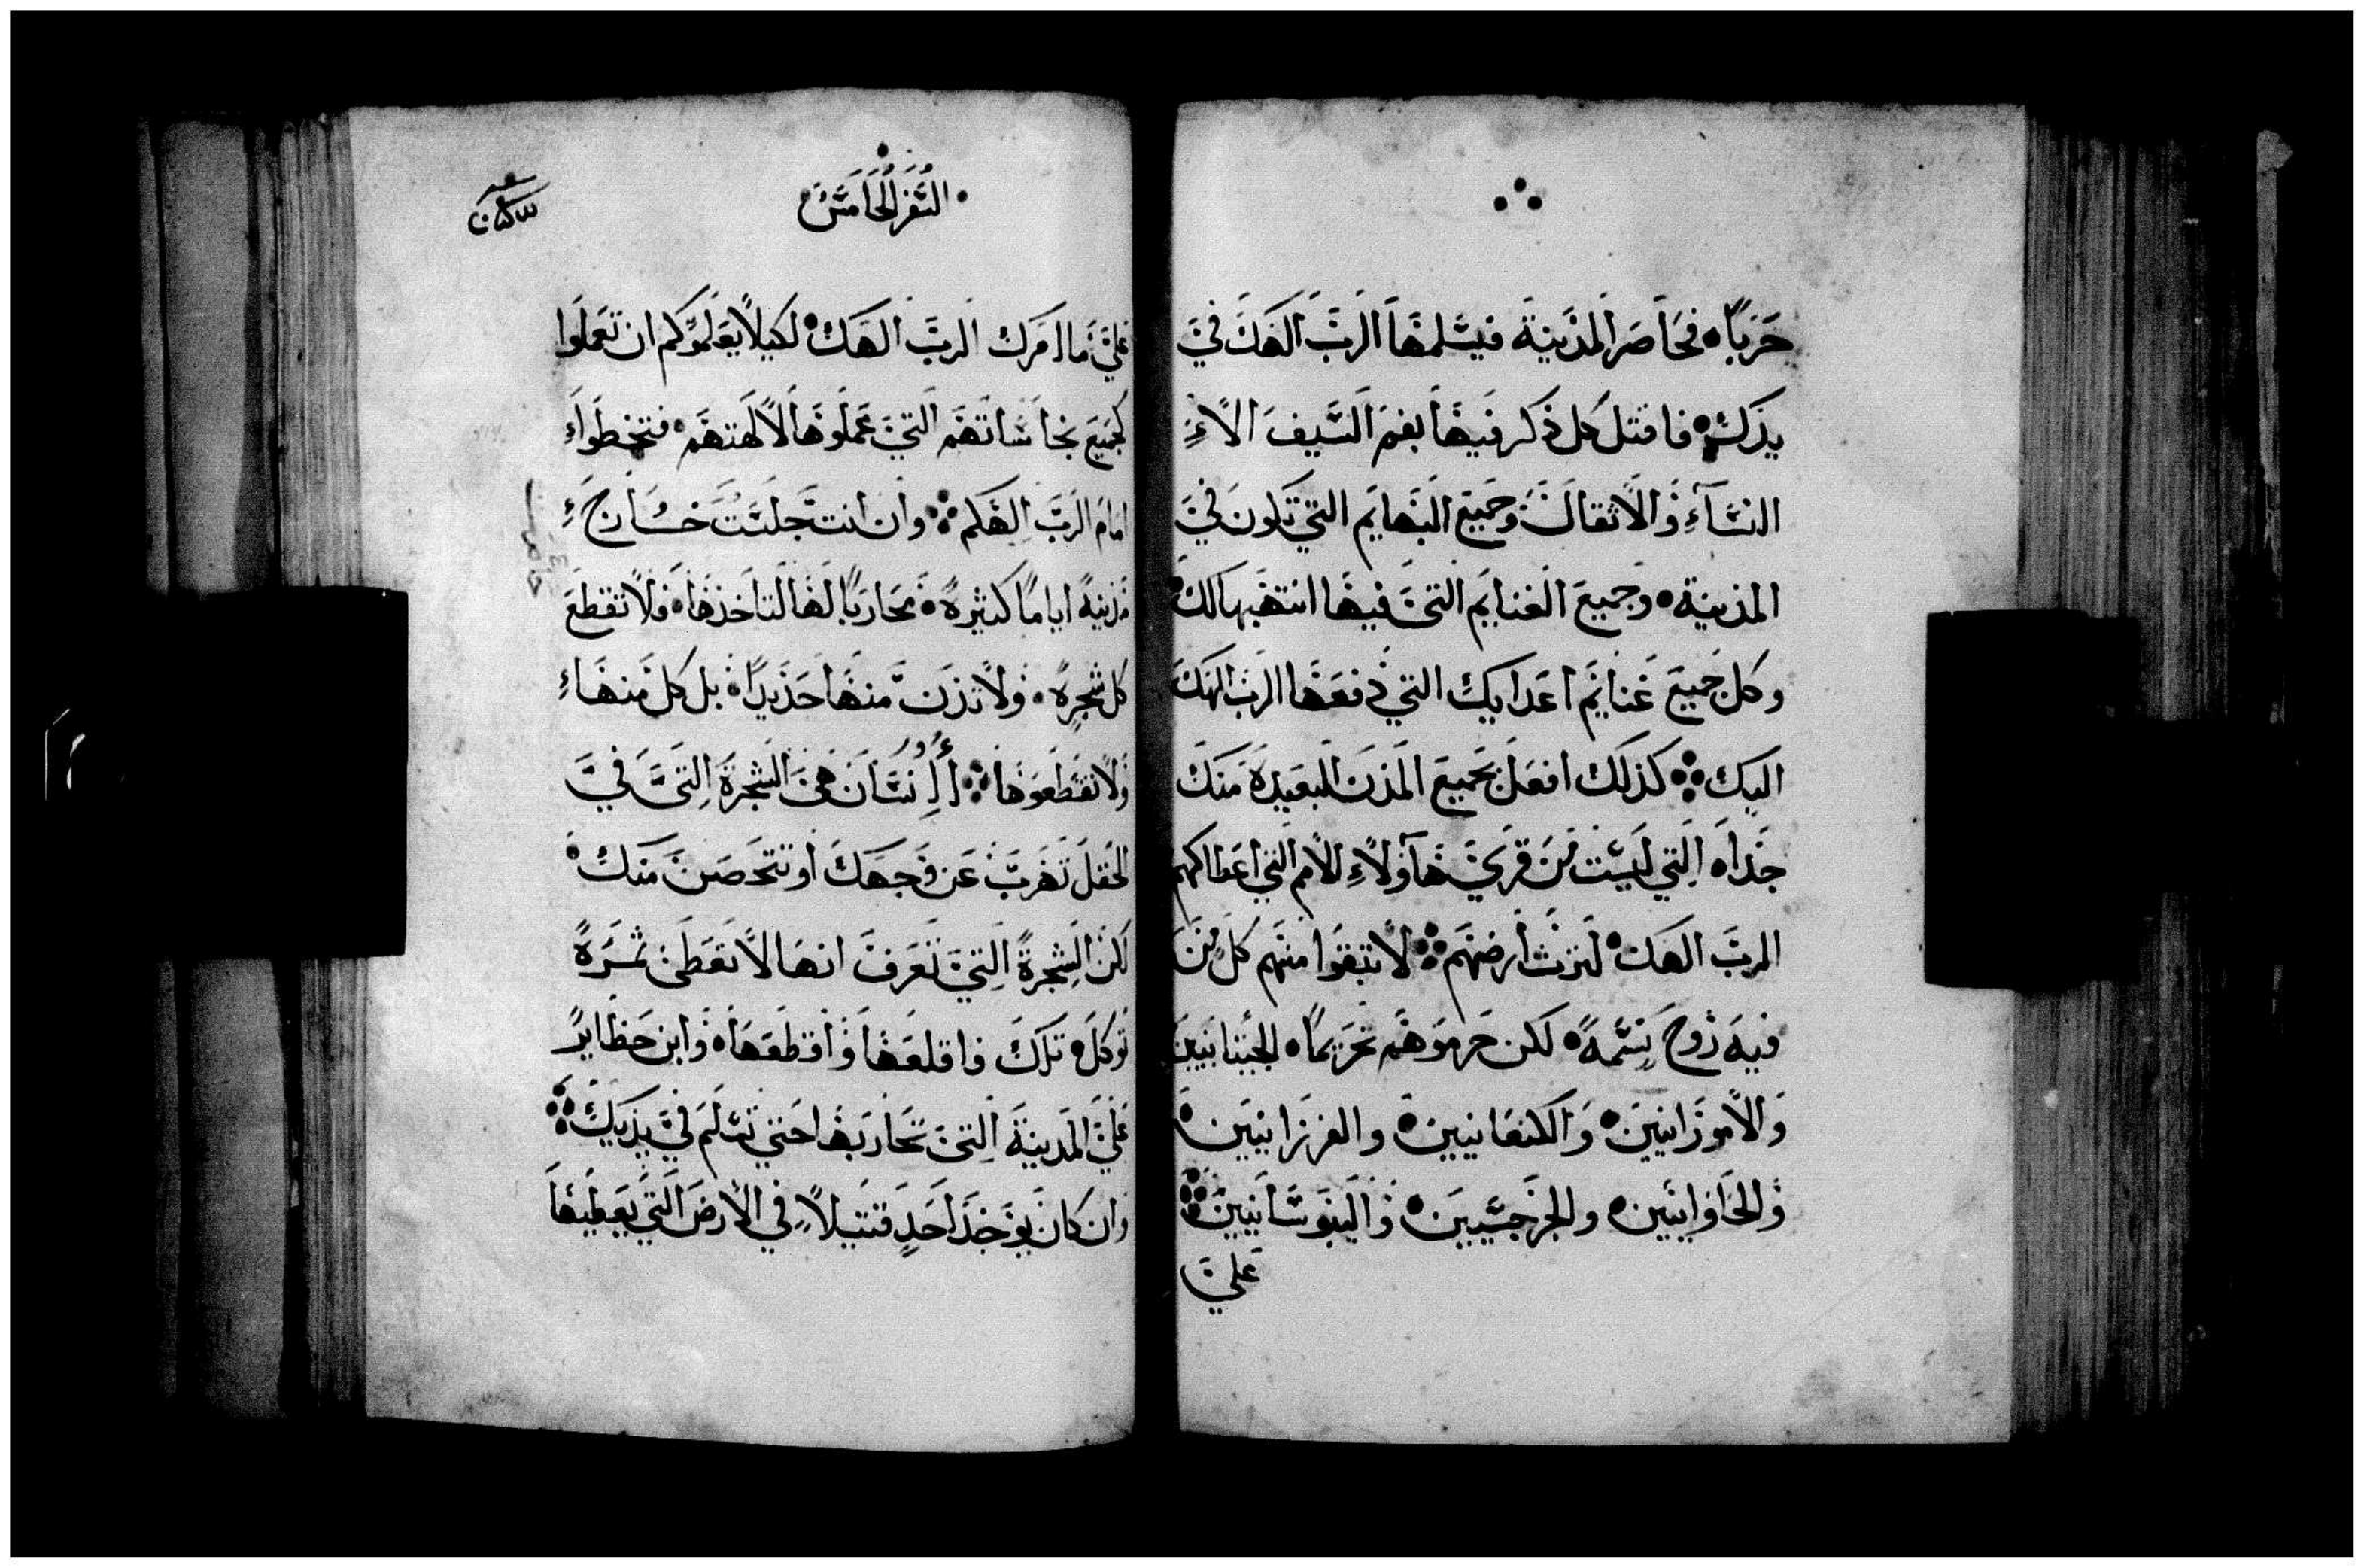 حربا فحاصر المدينة فيسلمها الرب الهك في
يدك فاقتل كل ذكر فيها بفم السيف الا
النساء والاثقال وجميع البهايم التي تكون في
المدينة وجميع الغنايم التي فيها انتهبها لك
وكل جميع غنايم اعدايك التي دفعها الرب الهك
اليك كذلك افعل بجميع المدن البعيدة منك
جدا التي ليست من قري هاولاء الامم التي اعطاكهم
الرب الهك لترث ارضهم لا تبقوا منهم كل من
فيه روح نسمة لكن حرموهم تحريما الجيثانيين
والامورانيين والكنعانيين والفرزانيين
والحاوانيين والجرجسيين واليبوسانيين
علي
السفر الخامس
علي ما امرك الرب الهك لكيلا يعلموكم ان تعملوا
كجميع نجاساتهم التي عملوها لالهتهم فتخطوا
امام الرب الهكم وان انت جلست خارج
مدينة اياما كثيرة محاربا لها لتاخذها فلا تقطع
كل شجرة ولا تزن منها حديدا بل كل منها
ولا تقطعوها انسان هي الشجرة التي في
الحقل تهرب عن وجهك او تتحصن منك
لكن الشجرة التي تعرف انها لا تعطي ثمرة
توكل تلك فاقلعها واقطعها وابن حظاير
علي المدينة التي تحاربها حتي تسلم في يديك
وان كان يوجد احد قتيلا في الارض التي يعطيها